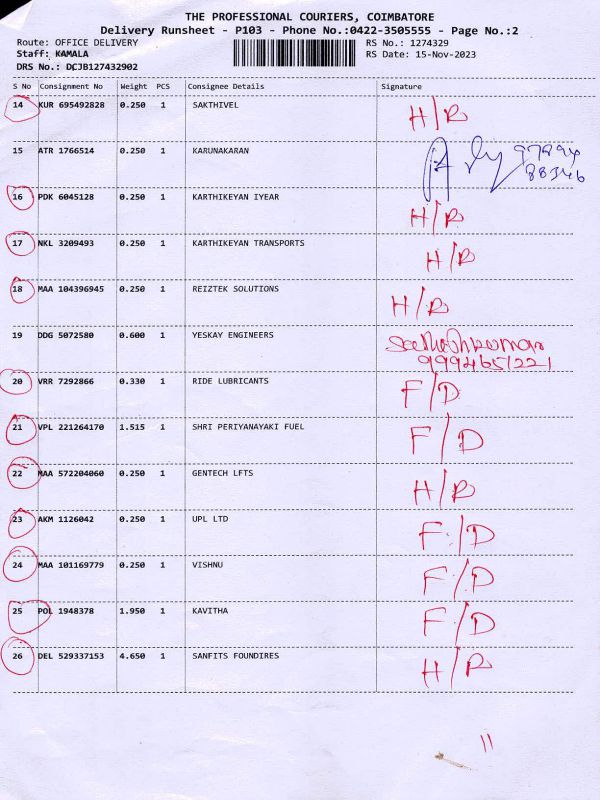 THE PROFESSIONAL COURIERS, COIMBATORE
Delivery Runsheet - P103 - Phone No.:0422-3505555 - Page No.:2
Route: OFFICE DELIVERY RS No.: 1274329
Staff: KAMALA RS Date: 15-Nov-2023
DRS No.: DCJB127432902
S No Consignment No Weight PCS Consignee Details Signature
14 KUR 695492828 0.250 1 SAKTHIVEL H/R
15 ATR 1766514 0.250 1 KARUNAKARAN 97894
88346
16 PDK 6045128 0.250 1 KARTHIKEYAN IYEAR H/R
17 NKL 3209493 0.250 1 KARTHIKEYAN TRANSPORTS H/R
18 MAA 104396945 0.250 1 REIZTEK SOLUTIONS H/R
19 DDG 5072580 0.600 1 YESKAY ENGINEERS
9994651221
20 VRR 7292866 0.330 1 RIDE LUBRICANTS F/D
21 VPL 221264170 1.515 1 SHRI PERIYANAYAKI FUEL F/D
22 MAA 572204060 0.250 1 GENTECH LFTS H/R
23 AKM 1126042 0.250 1 UPL LTD F/D
24 MAA 101169779 0.250 1 VISHNU F/D
25 POL 1948378 1.950 1 KAVITHA F/D
26 DEL 529337153 4.650 1 SANFITS FOUNDIRES H/R
11